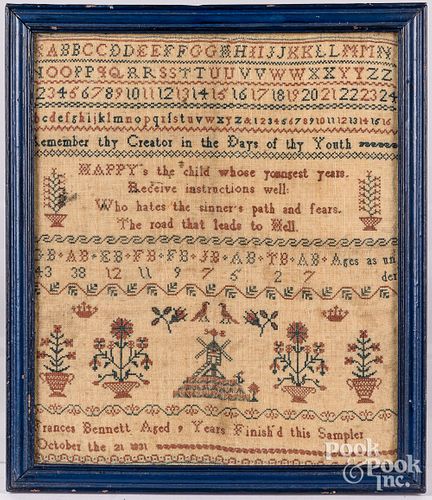 A B B C C D D E E F F G G H H I I J J K K L L M M N
N O O P P Q Q R R S S T T U U V V W W X X Y Y Z Z
1 2 3 4 5 6 7 8 9 10 11 12 13 14 15 16 17 18 19 20 21 22 23 24
b c d e f g h i j k l m n o p q r s t u v w x y z & 1 2 3 4 5 6 7 8 9 10 11 12 13 14 15 16
Remember thy Creator in the Days of thy Youth
HAPPY's the child whose youngest years.
Receive instructions well:
Who hates the sinner's path and fears.
The road that leads to Hell.
GB · AB · EB · FB · FB · JB · AB · TB · AB · Ages as un
43 38 12 11 9 7 5 2 7 der
Frances Bennett Aged 9 Years Finish'd this Sampler
October the 21 1831
Pook
& Pook
Inc.